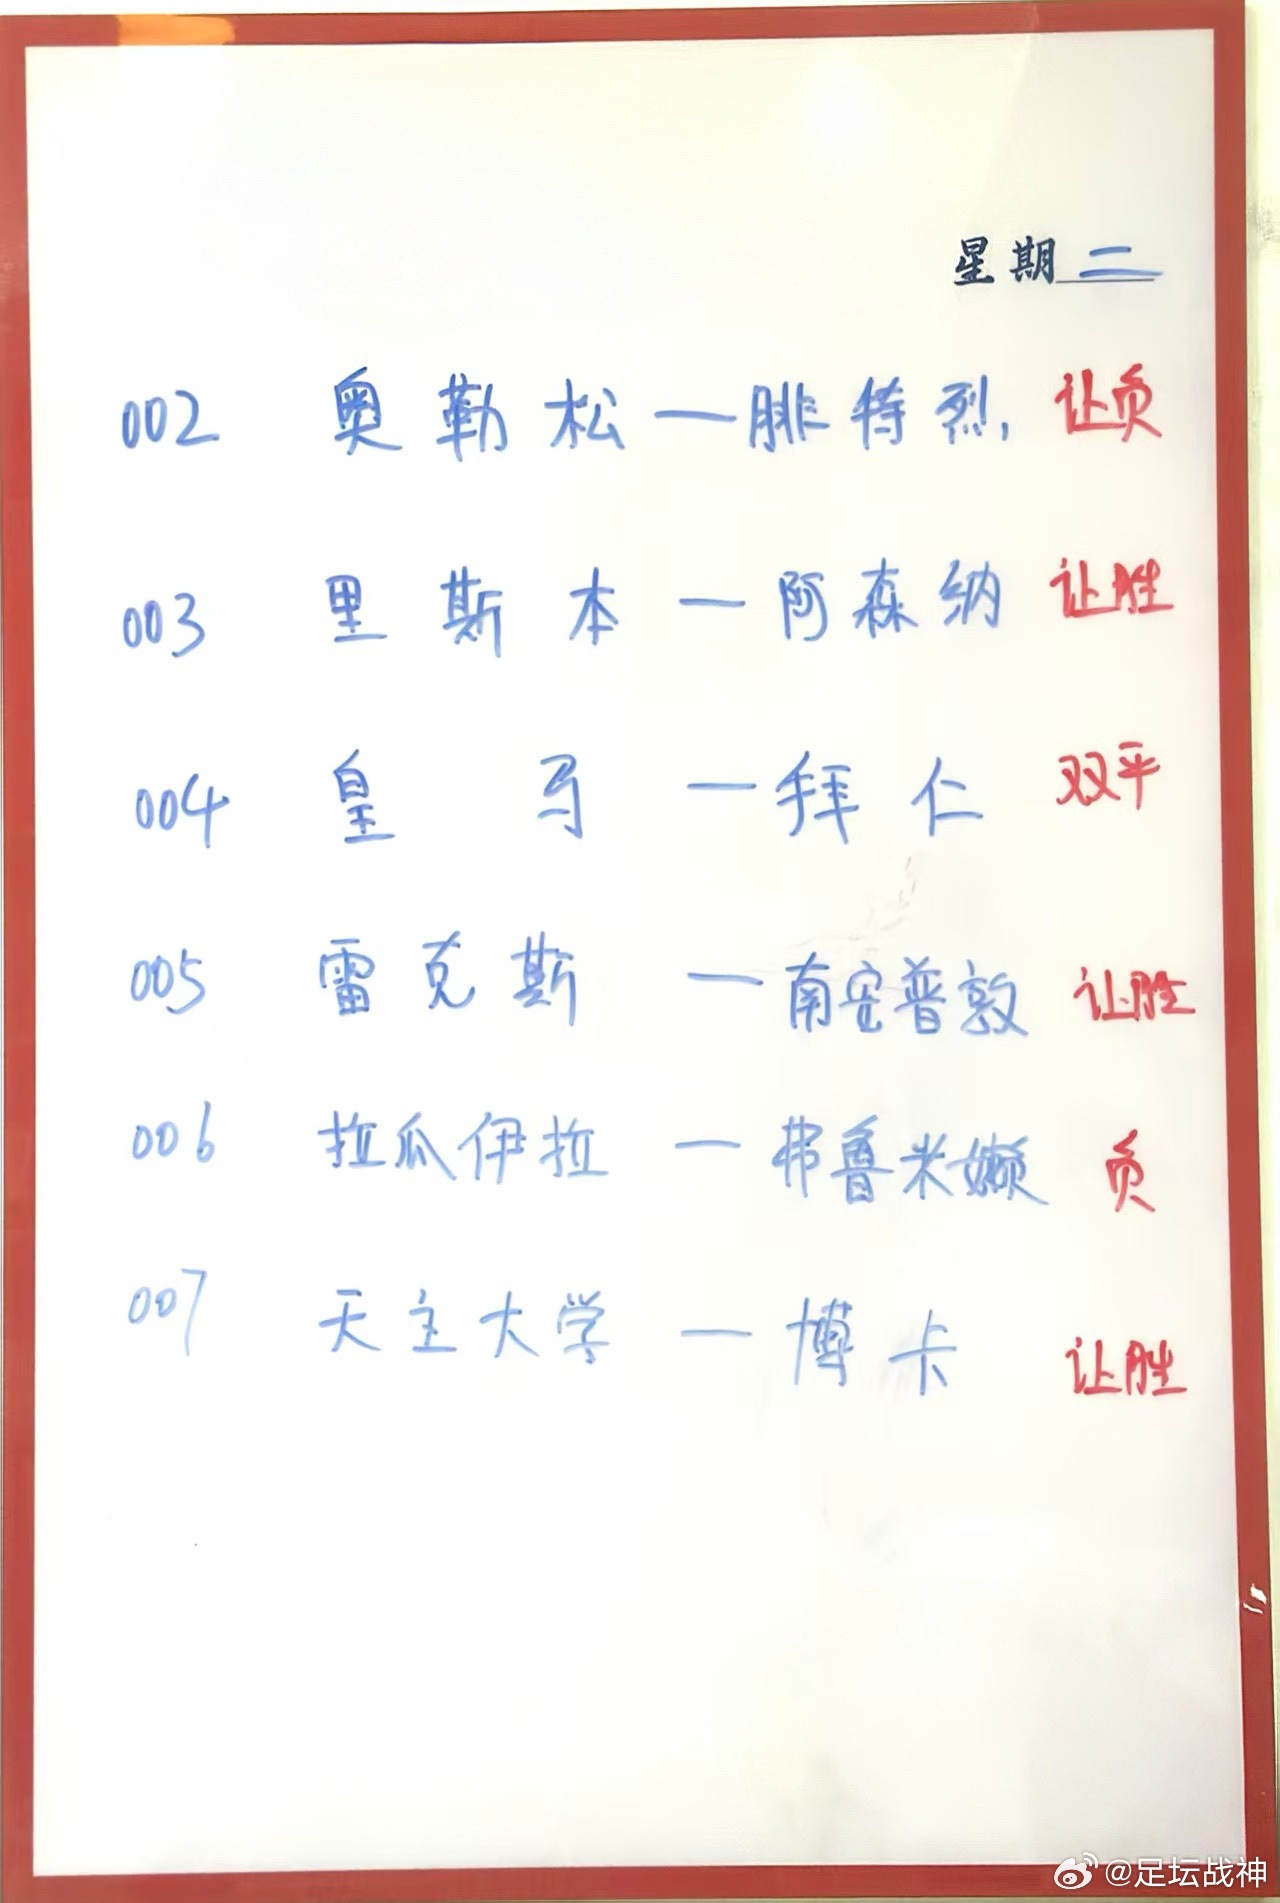 星期二
002 奥勒松—腓特烈, 让负
003 里斯本—阿森纳 让胜
004 皇马—拜仁 双平
005 雷克斯—南安普敦 让胜
006 拉瓜伊拉—弗鲁米嫩 负
007 天主大学—博卡 让胜
@足坛战神